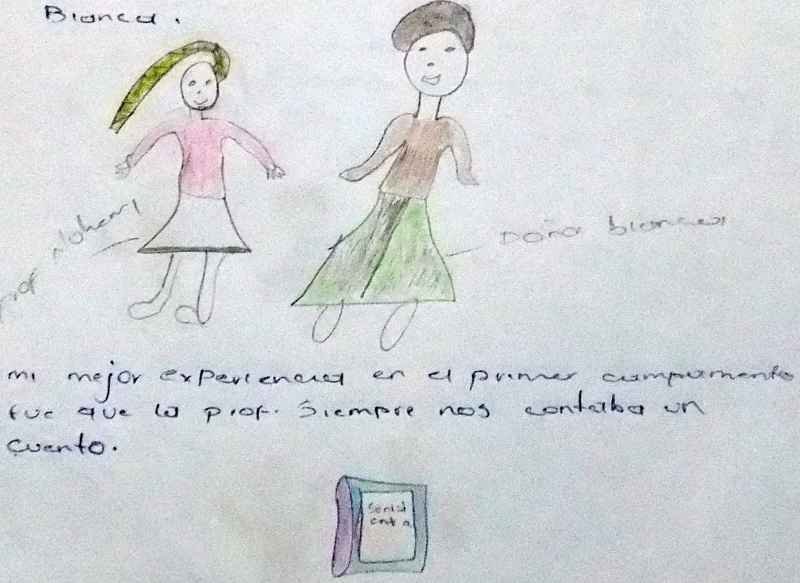 Bianca.
prof
Doña bianca
mi mejor experiencia en el primer campamento
fue que la prof. Siempre nos contaba un
cuento.